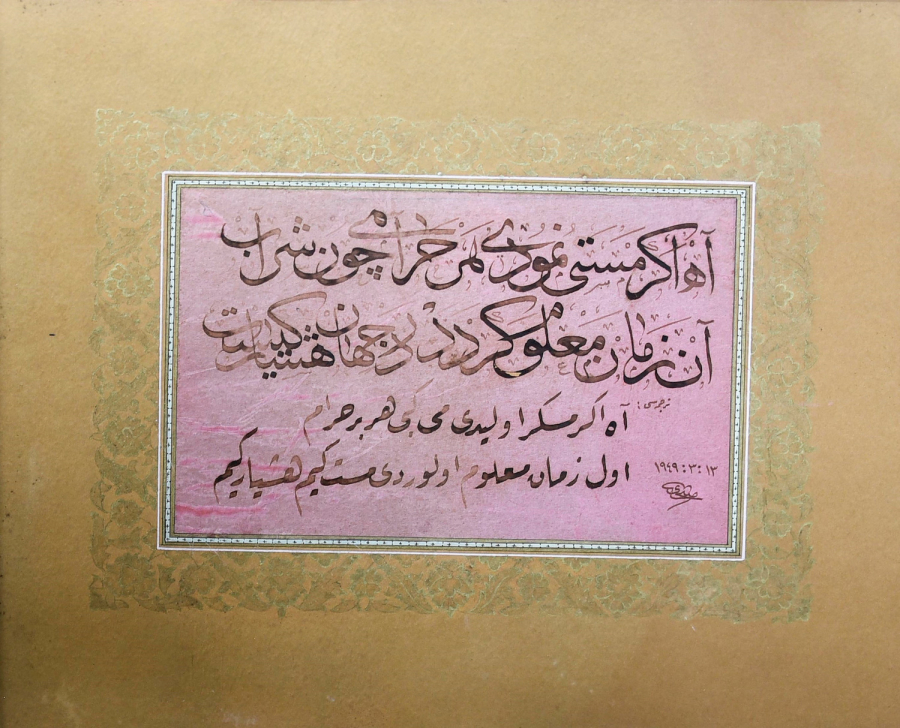 آه اگر مستی نمودی هر حرامی چون شراب
آن زمان معلوم کردد در جهان هشیار کیست
ترجمه سی:
آه اكر مسكر اولیدی می كبی هر بر حرام
اول زمان معلوم اولوردی مست كیم هشیار كیم
١٩٤٩:٣:١٣